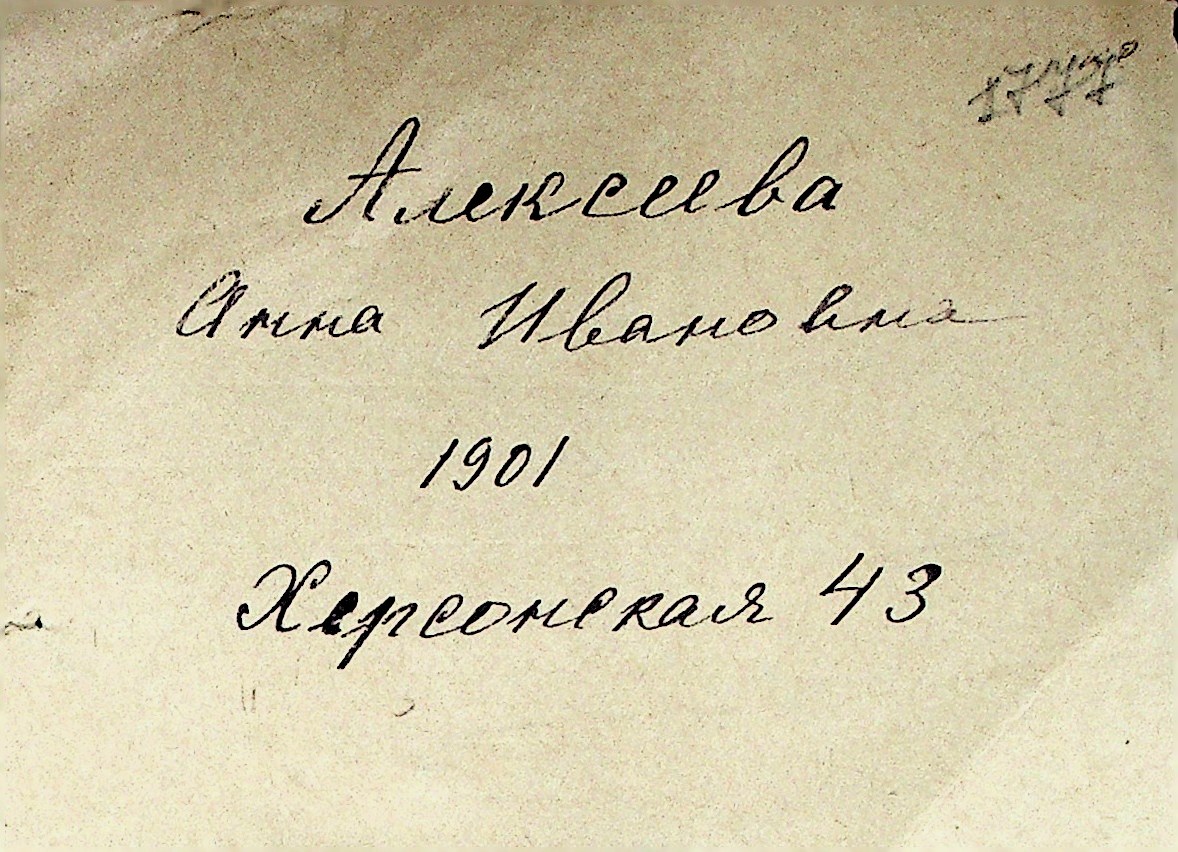 Алексеева
Анна Ивановна
1901
Херсонская 43